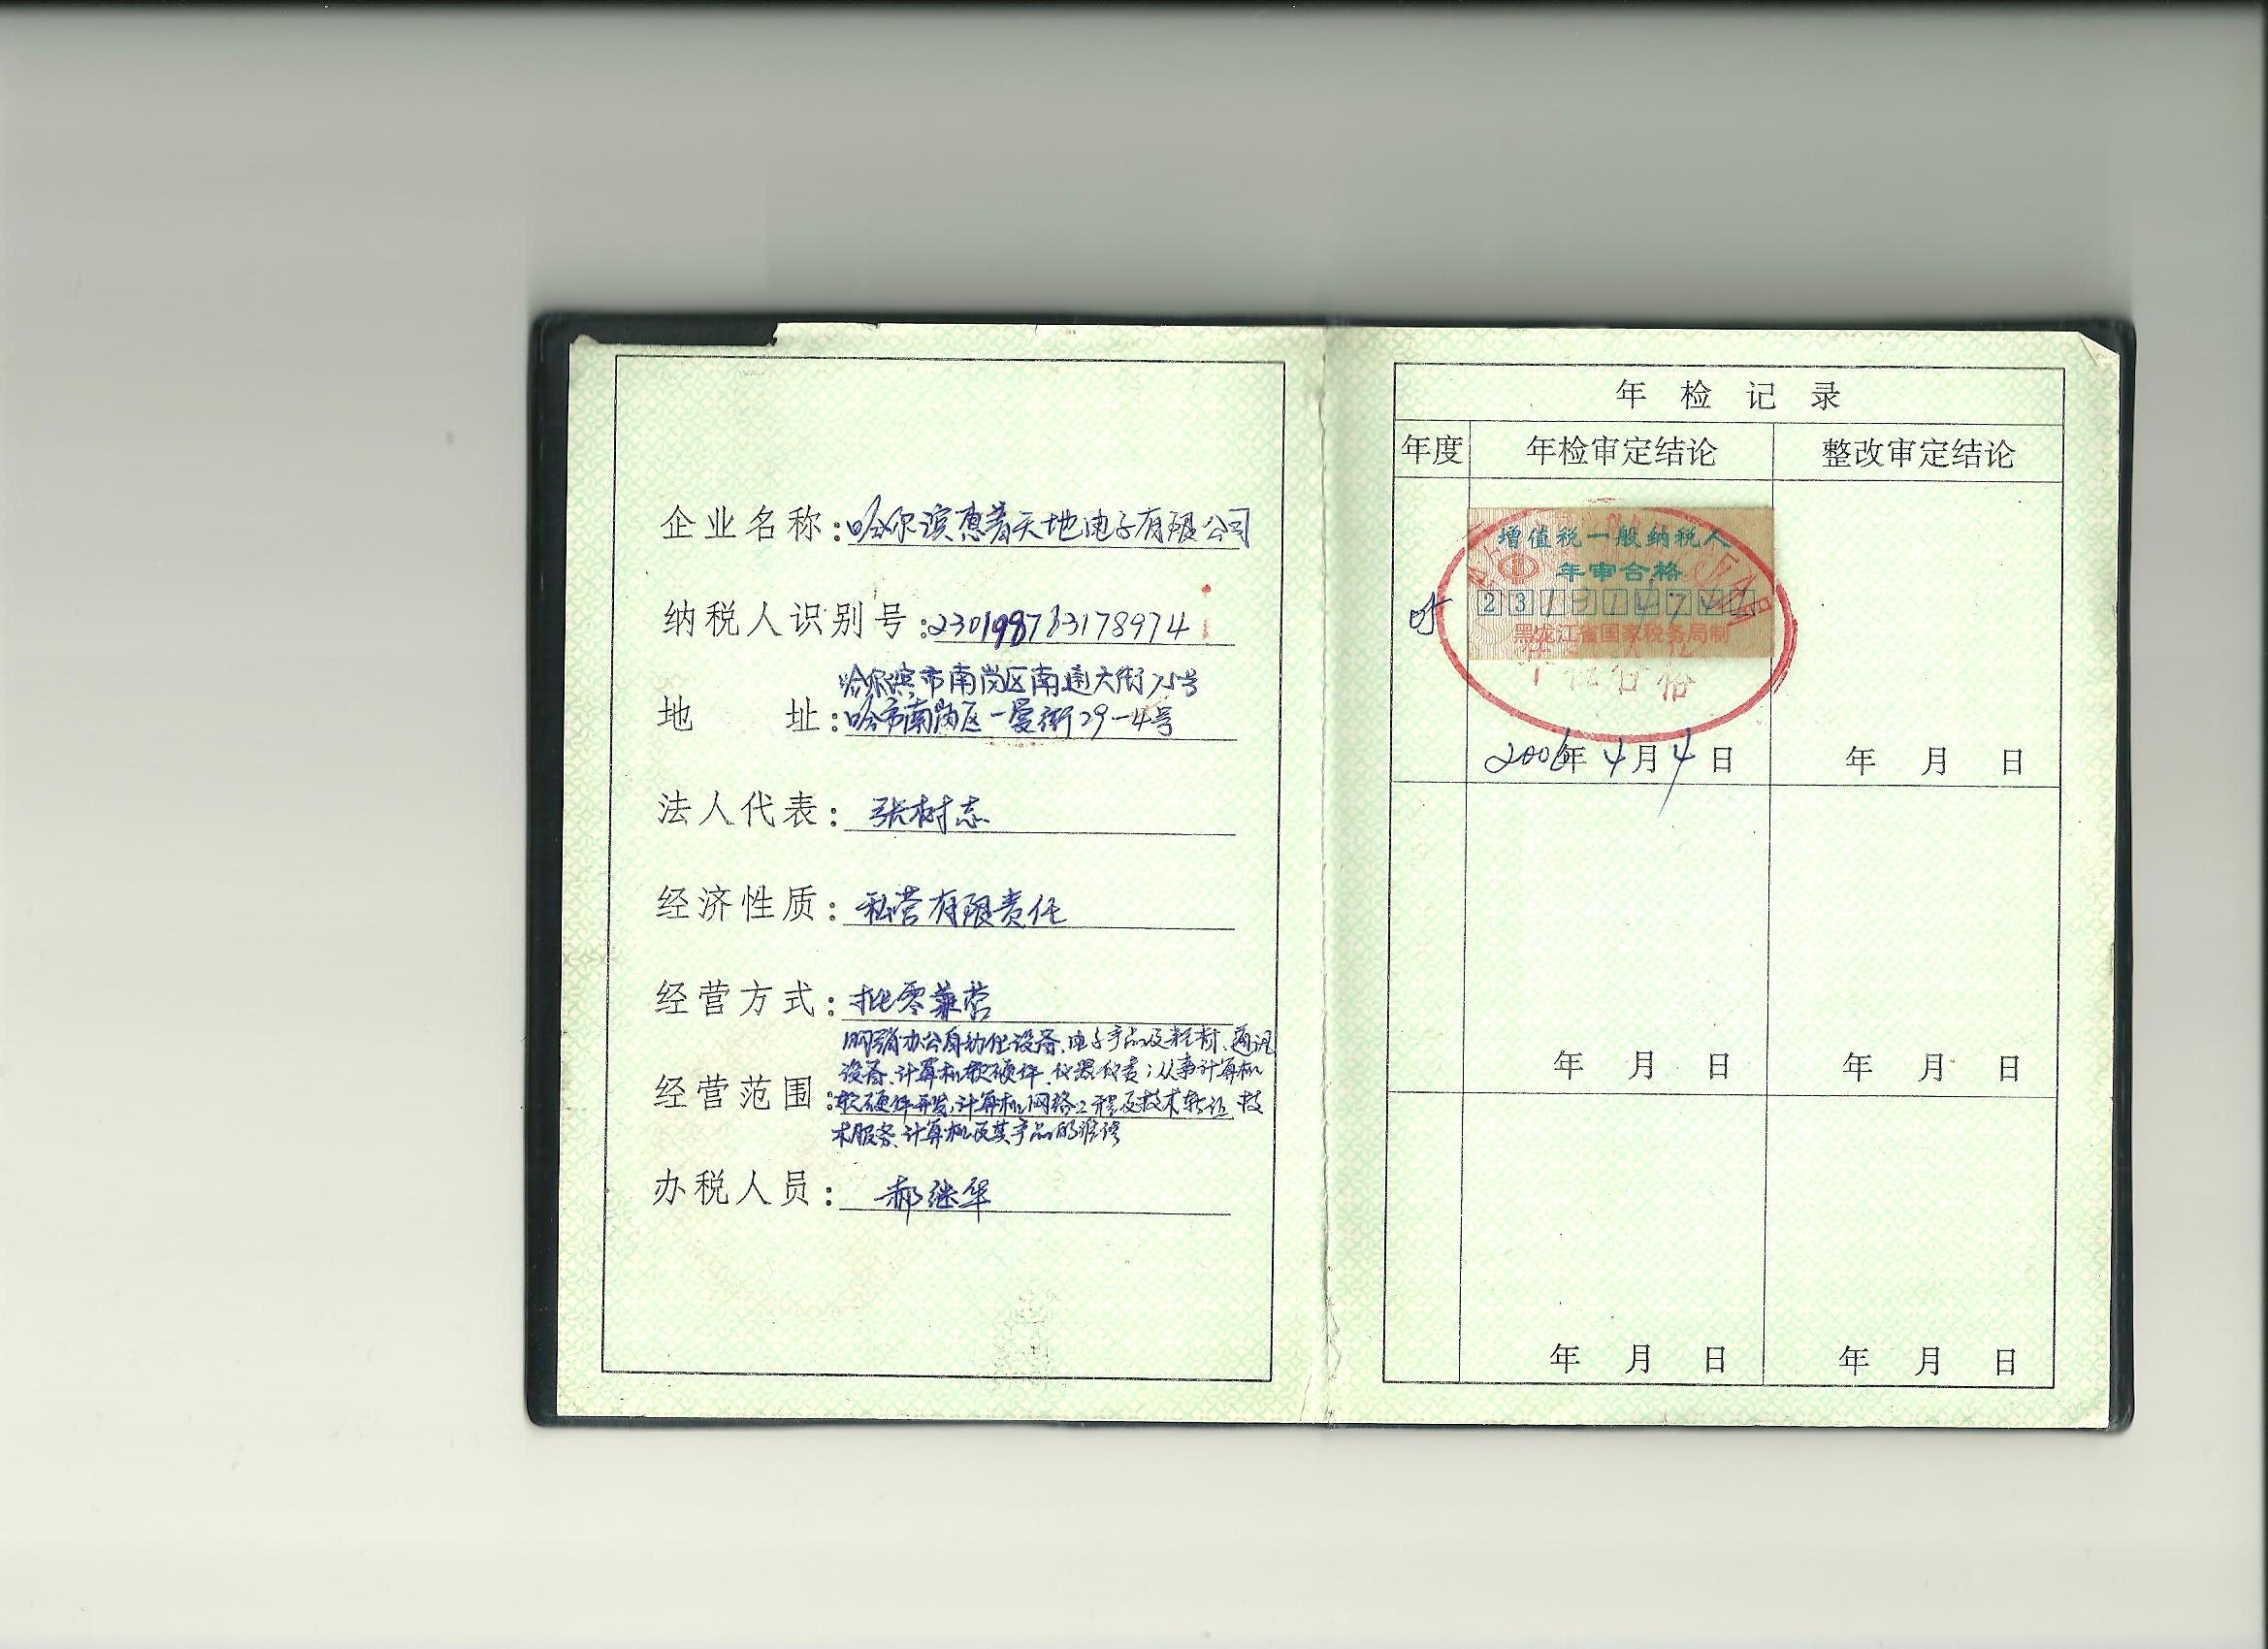 企业名称:哈尔滨惠普天地电子有限公司
纳税人识别号:230198783178974
哈尔滨市南岗区南通大街75号
地址:哈市南岗区一曼街29-4号
法人代表:张树志
经济性质:私营有限责任
经营方式:批零兼营
购销办公自动化设备、电子产品及耗材、通讯
设备、计算机软硬件、仪器仪表;从事计算机
经营范围:软硬件开发,计算机网络工程及技术转让 技
术服务、计算机及其产品的维修
办税人员:郝继华
年检记录
年度 年检审定结论 整改审定结论
增值税一般纳税人
年审合格
23
黑龙江省国家税务局制
年检合格
2006年4月4日 年 月 日
年 月 日 年 月 日
年 月 日 年 月 日